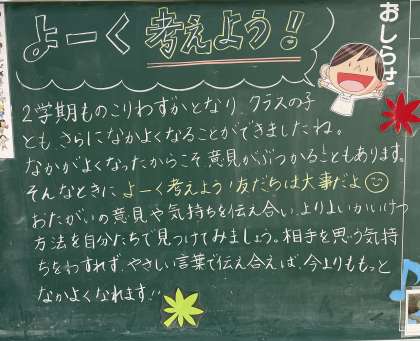 おしらせ
よーく考えよう!
2学期ものこりわずかとなり、クラスの子
とも、さらになかよくなることができましたね。
なかがよくなったからこそ意見がぶつかることもあります。
そんなときに、よーく考えよう!友だちは大事だよ
おたがいの意見や気持ちを伝え合い、よりよいかいけつ
方法を自分たちで見つけてみましょう。相手を思う気持
ちをわすれず、やさしい言葉で伝え合えば、今よりももっと
なかよくなれます!!